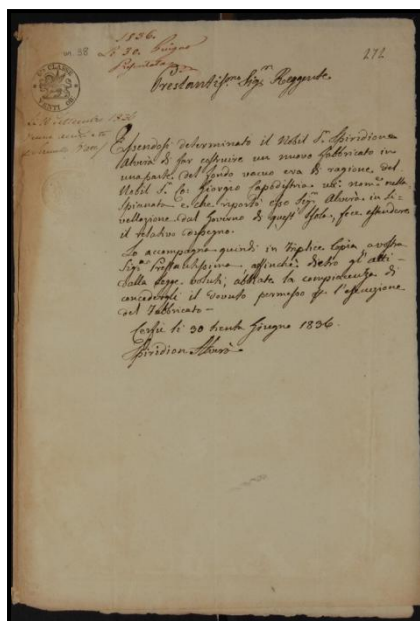 1836.
Li 30. Giugno
Presentata
N. 38
272
Prestantiss.mo Sig.r Reggente.
Essendosi determinato il Nobil S.r Spiridione
Alverà di far costruire un nuovo Fabbricato in
una parte del fondo vacuo era di ragione del
Nobil S.r Co: Giorgio Capodistria nella
Spianata e che riportò esso Sig.r Alverà in Li=
vellazione dal Governo di quest' Isola, fece estendere
il relativo dissegno.
Lo accompagna quindi in triplice copia a vostra
Sig.a Prestantissima affinchè dietro gl' atti
dalla Legge voluti, abbiate la compiacenza di
concedergli il dovuto permesso p. l'esecuzione
del Fabbricato —
Corfù li 30 trenta Giugno 1836.
Spiridion Alverà